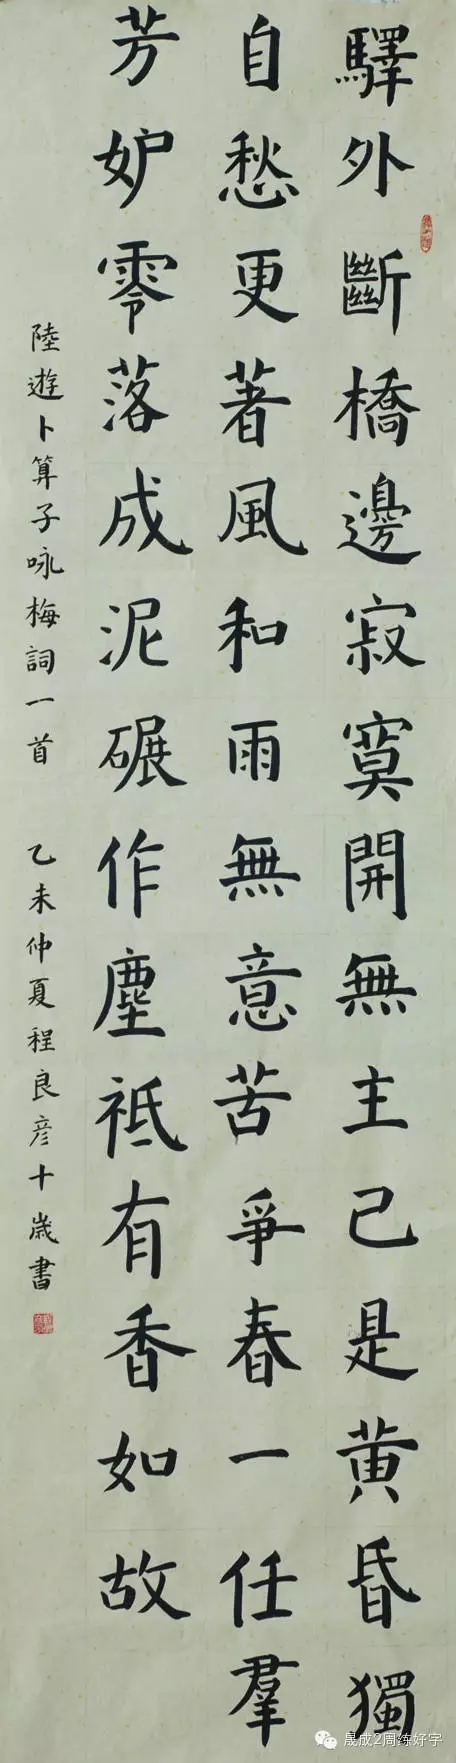 驛外斷橋邊寂寞開無主己是黃昏獨
自愁更著風和雨無意苦爭春一任羣
芳妒零落成泥碾作塵祗有香如故
陸遊卜算子咏梅詞一首 乙未仲夏程良彦十歲書
晟成2周练好字